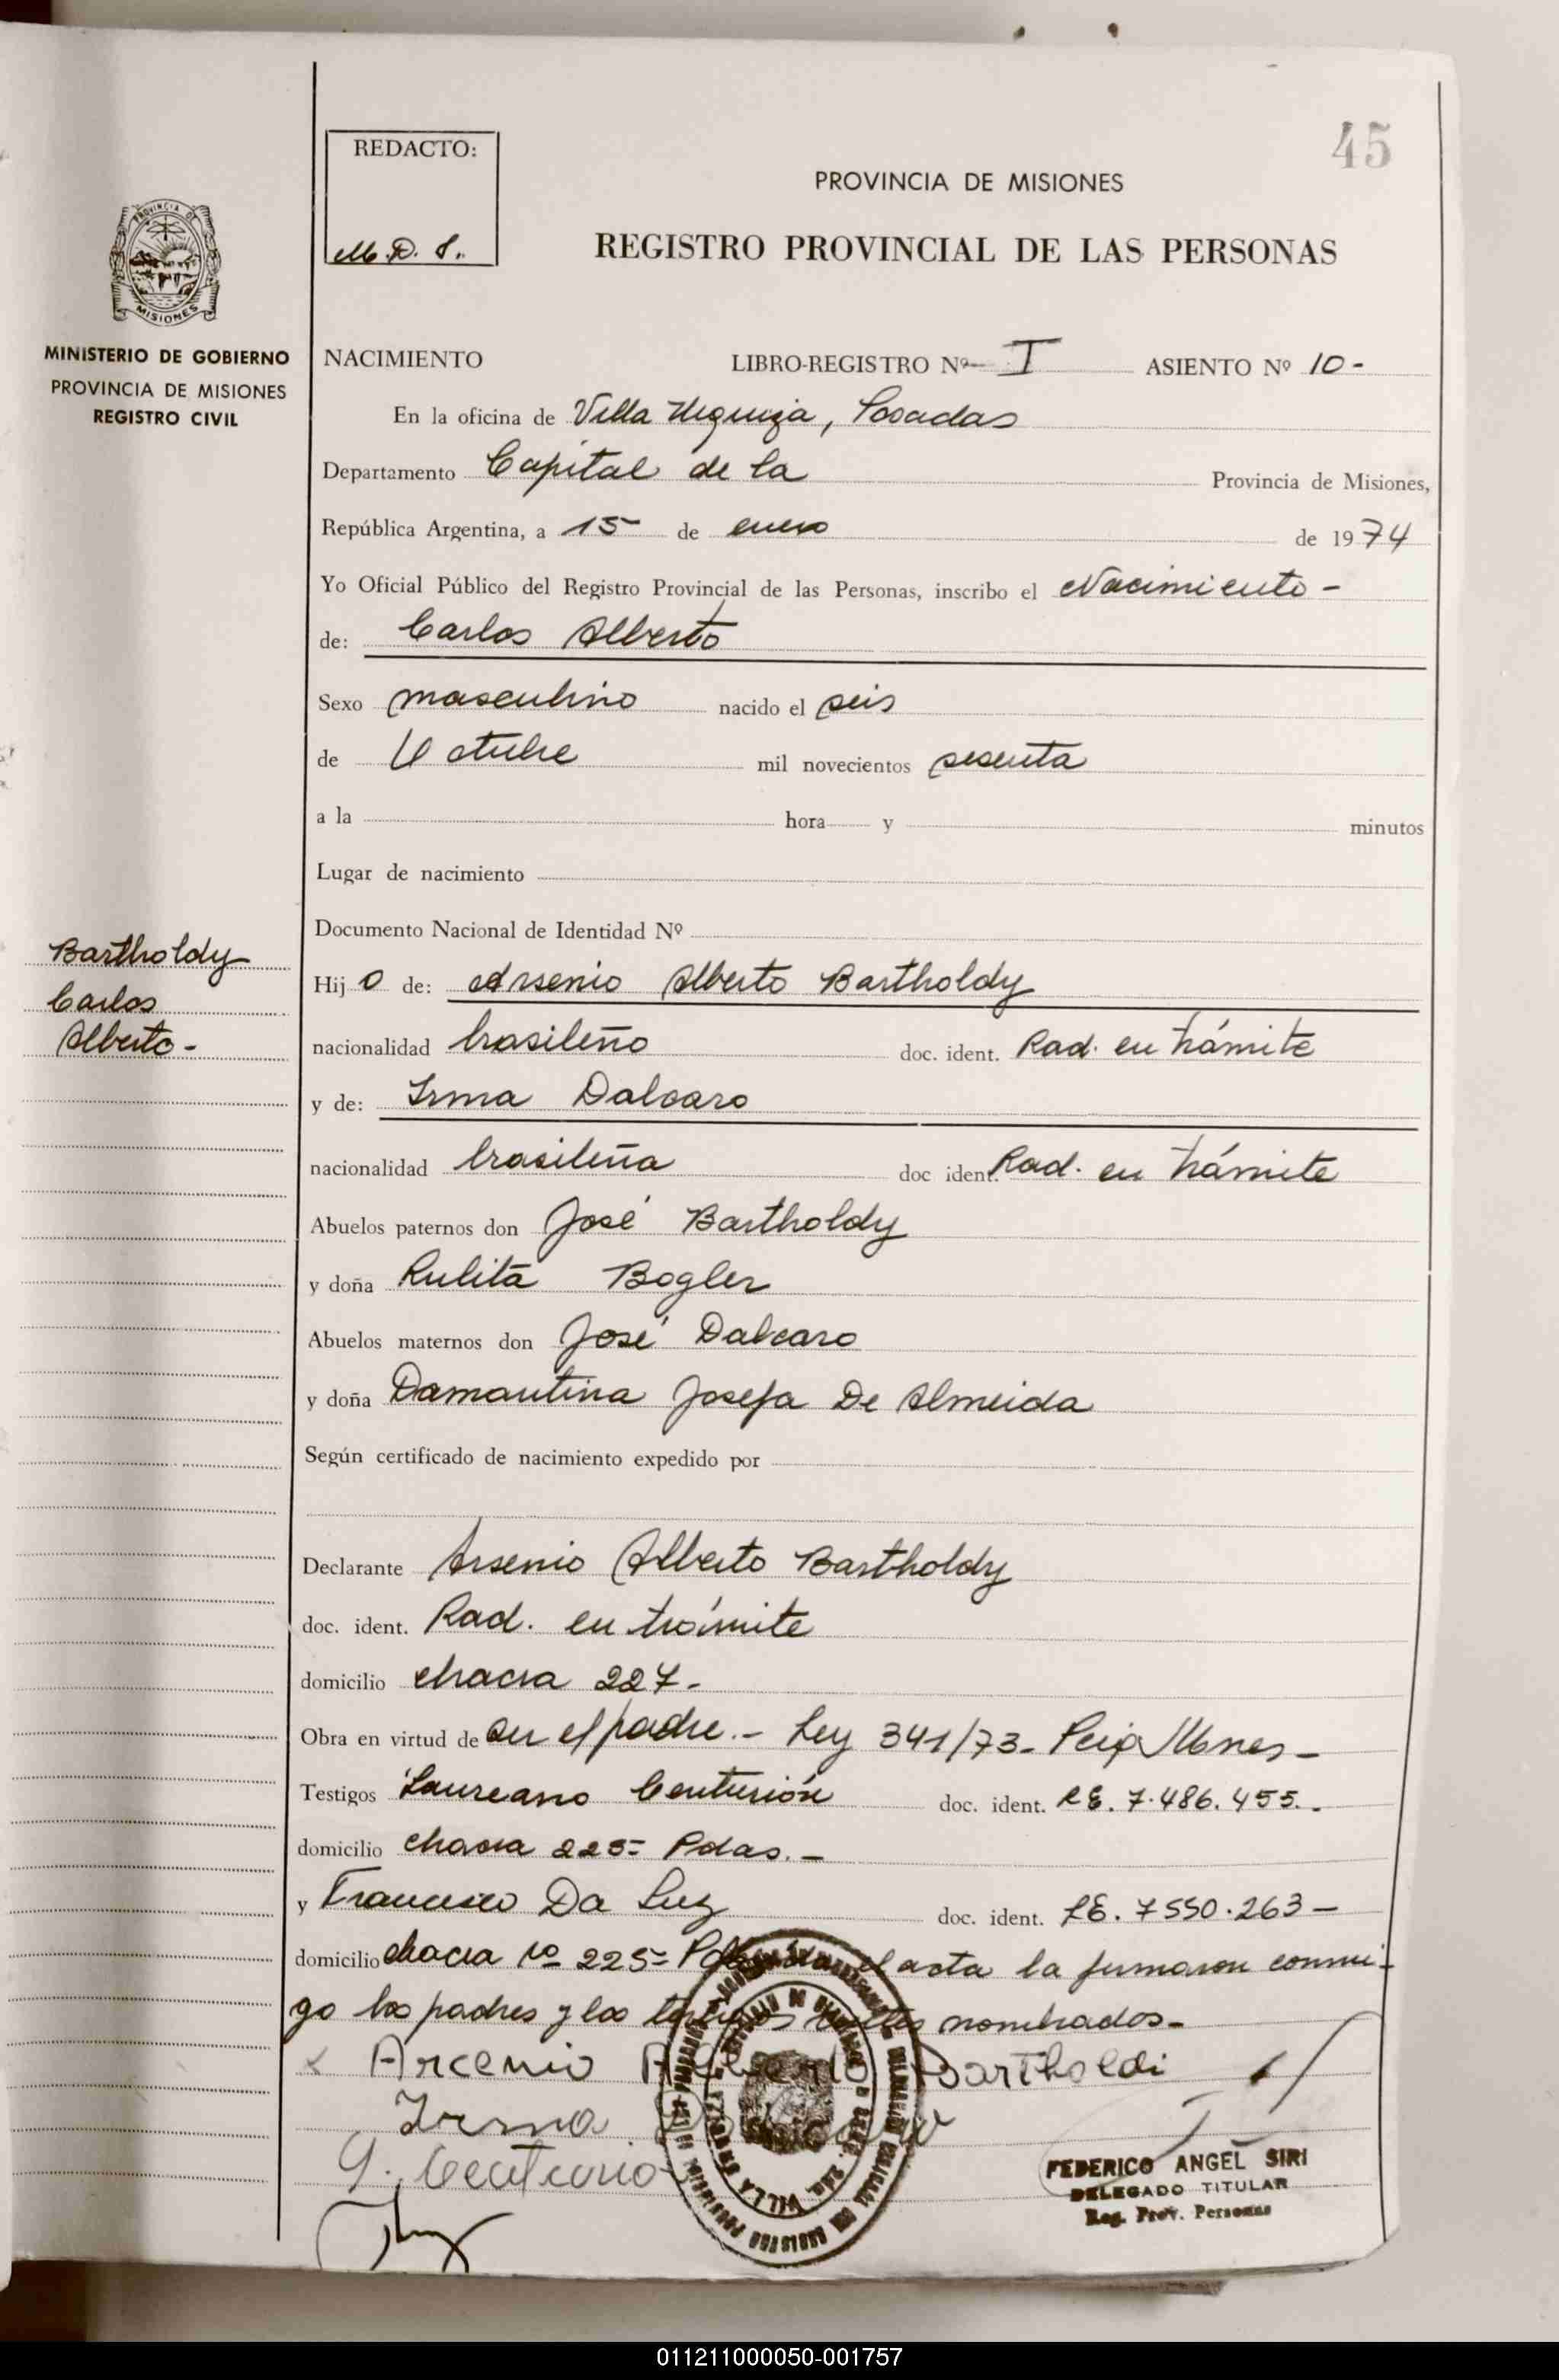 45
REDACTO:
M. D. S.
PROVINCIA DE MISIONES
REGISTRO PROVINCIAL DE LAS PERSONAS
PROVINCIA DE
MISIONES
MINISTERIO DE GOBIERNO
PROVINCIA DE MISIONES
REGISTRO CIVIL
NACIMIENTO LIBRO-REGISTRO Nº I ASIENTO Nº 10-
En la oficina de Villa Urquiza, Posadas
Departamento Capital de la Provincia de Misiones,
República Argentina, a 15 de enero de 1974
Yo Oficial Público del Registro Provincial de las Personas, inscribo el Nacimiento -
de: Carlos Alberto
Sexo masculino nacido el seis
de Octubre mil novecientos sesenta
a la hora y minutos
Lugar de nacimiento
Documento Nacional de Identidad Nº
Bartholdy
Carlos
Alberto -
Hijo de: Arsenio Alberto Bartholdy
nacionalidad brasileño doc. ident. Rad. en trámite
y de: Irma Dalcaro
nacionalidad brasileña doc ident. Rad. en trámite
Abuelos paternos don José Bartholdy
y doña Rulita Bogler
Abuelos maternos don José Dalcaro
y doña Damantina Josefa De Almeida
Según certificado de nacimiento expedido por
Declarante Arsenio Alberto Bartholdy
doc. ident. Rad. en trámite
domicilio chacra 227.
Obra en virtud de ser el padre.- Ley 341/73-
Testigos Laureano Centurión doc. ident. LE. 7.486.455.-
domicilio chacra 225- Pdas.-
y Francisco Da Luz doc. ident. LE. 7550.263-
domicilio chacra nº 225- el acta la firmaron conmi-
go los padres y los testigos nombrados-
x Arcenio Alberto Bartholdi
Irma
FEDERICO ANGEL SIRI
DELEGADO TITULAR
Reg. Prov. Personas
VILLA URQUIZA
011211000050-001757